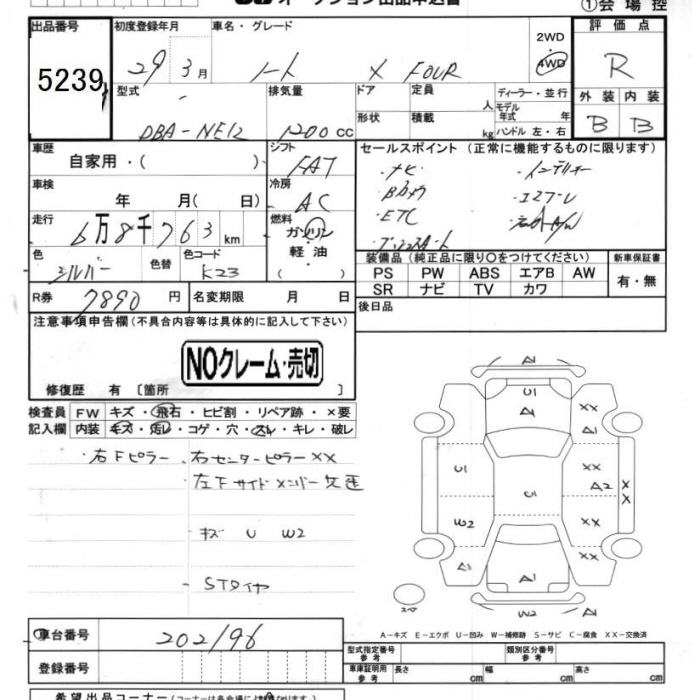 オークション出品申込書 ①会場控
出品番号 初度登録年月 車名・グレード 2WD 4WD 評価点
5239 29年 3月 ノート X FOUR R
型式 排気量 ドア 定員 人 ディーラー・並行 外装 内装
形状 積載 kg モデル年式 年 ハンドル 左・右
DBA-NE12 1200 cc B B
車歴 シフト セールスポイント (正常に機能するものに限ります)
自家用・( ) FAT ・ナビ ・インテリキー
車検 冷房 ・Bカメラ ・エマブレ
年 月(日) AC ・ETC
走行 燃料 ・プッシュスタート
6万8千763km ガソリン
色 色替 色コード 軽油 装備品 (純正品に限り○をつけてください) 新車保証書
シルバー K23 ( ) PS PW ABS エアB AW 有・無
R券 7890円 名変期限 月 日 SR ナビ TV カワ
後日品
注意事項申告欄(不具合内容等は具体的に記入して下さい)
NOクレーム・売切
修復歴 有 [箇所 ]
検査員 FW キズ・飛石・ヒビ割・リペア跡・×要
記入欄 内装 キズ・汚レ・コゲ・穴・スレ・キレ・破レ
右Fピラー、右センターピラーXX
左Fサイドメンバー
・キズ U W2
・STタイヤ
A1
U1
A1 XX
U1 XX
A2 X
U1 X
W2 XX
A1 XX
A1
スペア W2 A1
A-キズ E-エクボ U-凹み W-補修跡 S-サビ C-腐食 XX-交換済
車台番号 202196
登録番号
型式指定番号 参考 類別区分番号 参考
車庫証明用 参考 長さ cm 幅 cm 高さ cm
希望出品コーナー